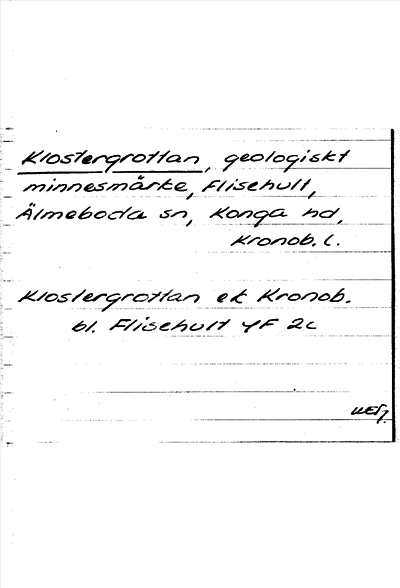 Klostergrottan, geologiskt
minnesmärke, Flisehult,
Älmeboda sn, Konga hd,
Kronob. l.
Klostergrottan ek Kronob.
bl. Flisehult 4F 2c